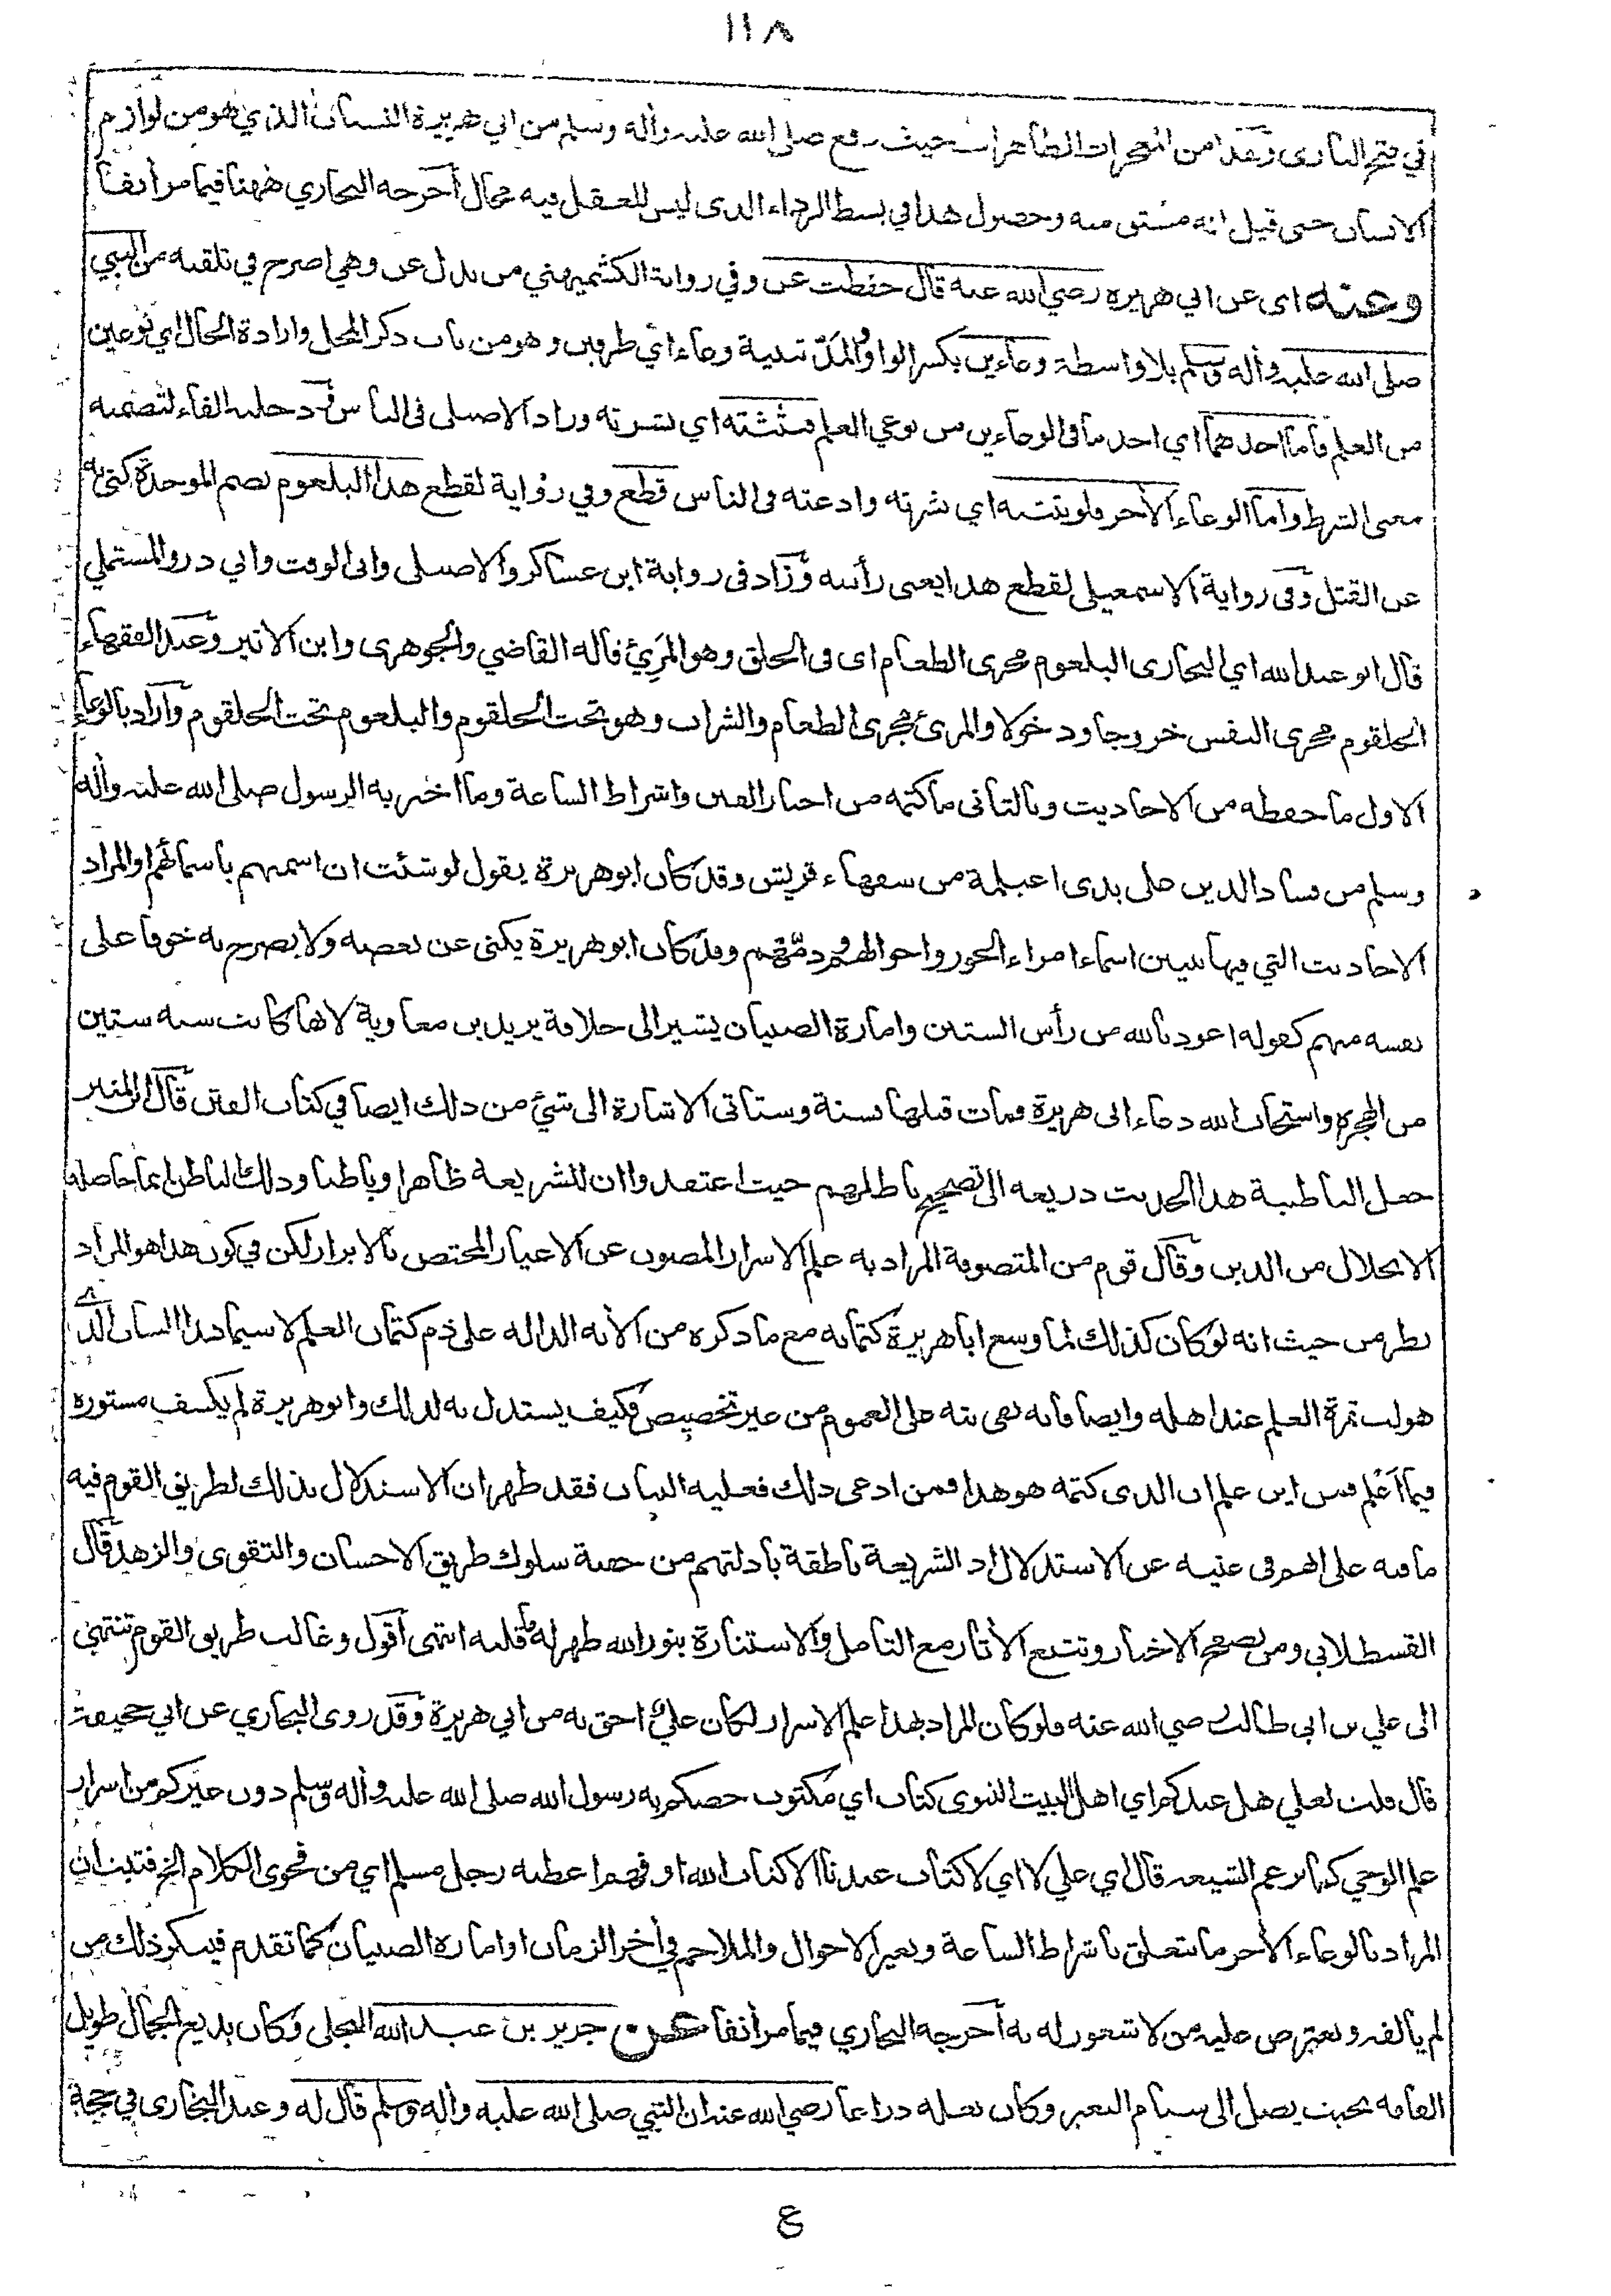 ١١٨
في فتح الباري وهذا من المعجزات الظاهرات حيث رفع صلى الله عليه وأله وسلم من ابي هريرة النسيان الذي هو من لوازم
الانسان حتى قيل انه مشتق منه وحصول هذا في بسط الرداء الذى ليس للعقل فيه مجال أخرجه البخاري ههنا فيما مر أنفا
وعنه اى عن ابي هريره رضي الله عنه قال حفظت عن وفي رواية الكشميهني من بدل عن وهي اصرح في تلقيه من النبي
صلى الله عليه وأله وسلم بلا واسطة وعاءين بكسر الواو والمد تثنية وعاء اي ظرفين وهو من باب ذكر المحل وارادة الحال اي نوعين
من العلم فأما احدهما اي احد ما في الوعاءين من نوعي العلم فبثثته اي نشرته وزاد الاصيلى فى الناس ودخلت الفاء لتضمنه
معنى الشرط واما الوعاء الأخر فلو بثثته اي نشرته واذعته فى الناس قطع وفي رواية لقطع هذا البلعوم بضم الموحدة كنى به
عن القتل وفى رواية الاسمعيلى لقطع هذا يعنى رأسه وزاد فى رواية ابن عساكر والاصيلى وابى الوقت وابي ذر والمستملي
قال ابو عبد الله اي البخارى البلعوم مجرى الطعام اى فى الحلق وهو المرئ قاله القاضي والجوهرى وابن الاثير وعند الفقهاء
الحلقوم مجرى النفس خروجا ودخولا والمرئ مجرى الطعام والشراب وهو تحت الحلقوم والبلعوم تحت الحلقوم وأراد بالوعاء
الاول ما حفظه من الاحاديث وبالثانى ما كتمه من اخبار الفتن واشراط الساعة وما اخبر به الرسول صلى الله عليه وأله
وسلم من فساد الدين على يدى اغيلمة من سفهاء قريش وقد كان ابو هريرة يقول لو شئت ان اسميهم باسمائهم او المراد
الاحاديث التي فيها تبيين اسماء امراء الجور واحوالهم وذمهم وقد كان ابو هريرة يكنى عن بعضه ولا يصرح به خوفا على
نفسه منهم كقوله اعوذ بالله من رأس الستين وامارة الصبيان يشير الى خلافة يزيد بن معاوية لانها كانت سنه ستين
من الهجرة واستجاب الله دعاء ابى هريرة فمات قبلها بسنة وستاتى الاشارة الى شئ من ذلك ايضا في كتاب الفتن قال ابن المنير
جعل الباطنية هذا الحديث ذريعه الى تصحيح باطلهم حيث اعتقدوا ان للشريعة ظاهرا وباطنا وذلك الباطن انما حاصله
الانحلال من الدين وقال قوم من المتصوفة المراد به علم الاسرار المصون عن الاغيار المختص بالابرار لكن في كون هذا هو المراد
نظر من حيث انه لو كان كذلك لما وسع ابا هريرة كتمانه مع ما ذكره من الأيه الداله على ذم كتمان العلم لا سيما هذا الشان الذي
هو لب ثمرة العلم عند اهله وايضا فانه نفى بثه على العموم من غير تخصيص فكيف يستدل به لذلك وابو هريرة لم يكشف مستوره
فيما أعلم فمن اين علم ان الذى كتمه هو هذا فمن ادعى ذلك فعليه البيان فقد ظهر ان الاستدلال بذلك لطريق القوم فيه
ما فيه على انهم فى غنيه عن الاستدلال اذ الشريعة ناطقة بادلتهم من حصة سلوك طريق الاحسان والتقوى والزهد قال
القسطلانى ومن تصفح الاخبار وتتبع الأثار مع التامل والاستنارة بنور الله ظهر له ما قلته انتهى أقول وغالب طريق القوم تنتهي
الى علي بن ابى طالب رضي الله عنه فلو كان المراد بهذا علم الاسرار لكان علي احق به من ابي هريرة وقد روى البخاري عن ابي جحيفة
قال قلت لعلي هل عندكم اي اهل البيت النبوى كتاب اي مكتوب خصكم به رسول الله صلى الله عليه وأله وسلم دون غيركم من اسرار
علم الوحي كما يزعم الشيعه قال اي علي لا اي لا كتاب عندنا الا كتاب الله او فهم اعطيه رجل مسلم اي من فحوى الكلام الخ فتبين ان
المراد بالوعاء الأخر ما يتعلق باشراط الساعة وتغير الاحوال والملاحم في أخر الزمان او امارة الصبيان كما تقدم فينكر ذلك من
لم يألفه ويعترض عليه من لا شعور له به أخرجه البخاري فيما مر أنفا عن جرير بن عبد الله البجلى وكان بديع الجمال طويل
القامه بحيث يصل الى سنام البعير وكان نعله ذراعا رضي الله عنه ان النبي صلى الله عليه وأله وسلم قال له وعند البخارى في حجة
ع